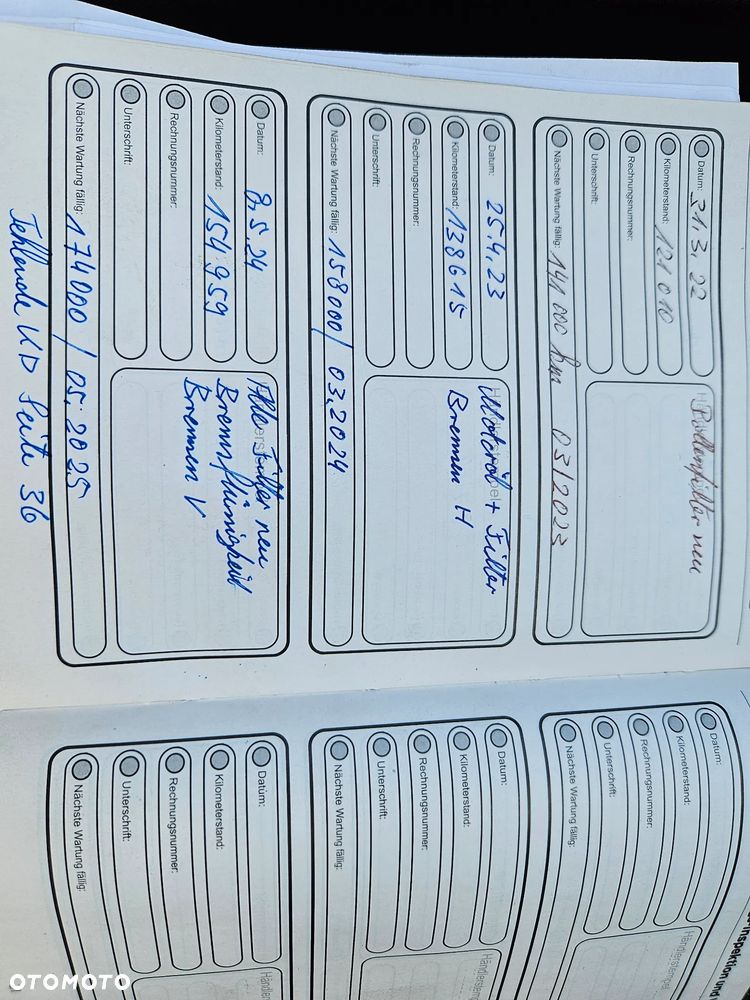 Datum: 31.3.22
Kilometerstand: 121 010
Rechnungsnummer:
Unterschrift:
Nächste Wartung fällig: 141 000 km 03/2023
Pollenfilter neu
Datum: 25.4.23
Kilometerstand: 138615
Rechnungsnummer:
Unterschrift:
Nächste Wartung fällig: 158000/ 03.2024
Motoröl + Filter
Bremsen H
Datum: 8.5.24
Kilometerstand: 154.959
Rechnungsnummer:
Unterschrift:
Nächste Wartung fällig: 174000 / 05.2025
Alle Filter neu
Bremsflüssigkeit
Bremsen V
Fehlende KD Seite 36
Datum:
Kilometerstand:
Rechnungsnummer:
Unterschrift:
Nächste Wartung fällig:
Händlerstempel
Datum:
Kilometerstand:
Rechnungsnummer:
Unterschrift:
Nächste Wartung fällig:
Händlerstempel
Datum:
Kilometerstand:
Rechnungsnummer:
Unterschrift:
Nächste Wartung fällig:
Inspektion und
OTOMOTO